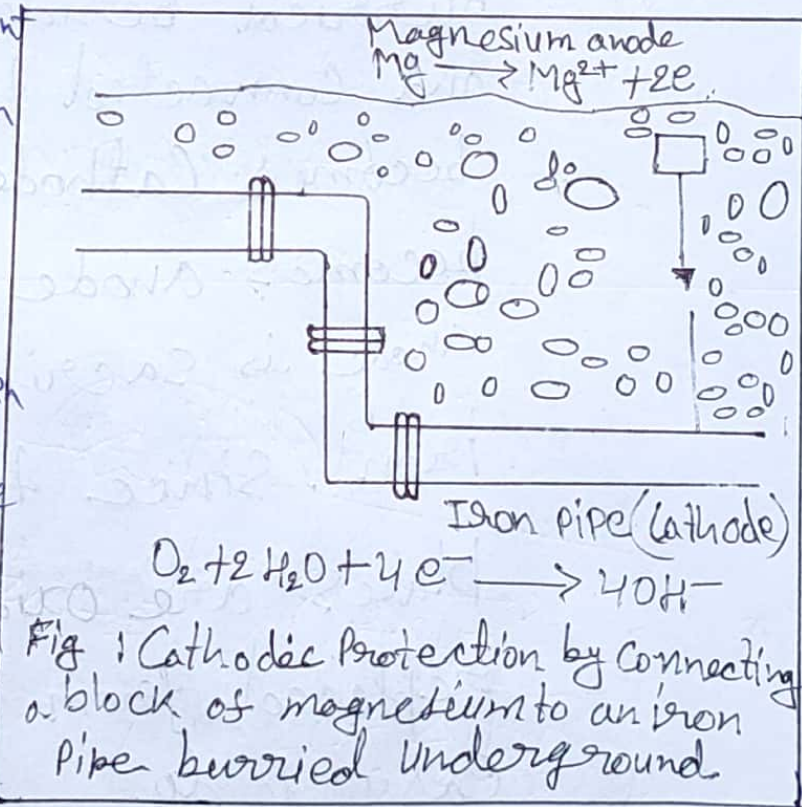 Magnesium anode
Mg → Mg²⁺ + 2e
Iron pipe (Cathode)
O₂ + 2H₂O + 4e⁻ → 4OH⁻
Fig : Cathodic Protection by Connecting
a block of magnesium to an iron
Pipe burried underground.